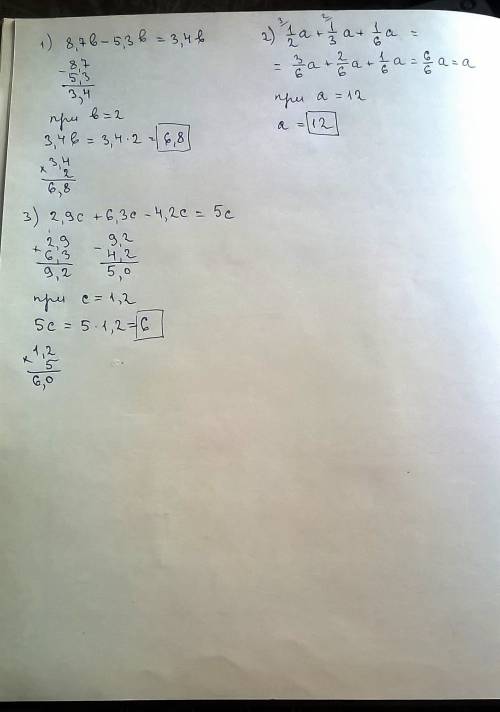 1) 8,7в - 5,3в = 3,4в
- 8,7
5,3
3,4
при в = 2
3,4в = 3,4 · 2 = 6,8
× 3,4
2
6,8
2) ³⁄ 1/2 a + ²⁄ 1/3 a + 1/6 a =
= 3/6 a + 2/6 a + 1/6 a = 6/6 a = a
при a = 12
a = 12
3) 2,9c + 6,3c - 4,2c = 5c
+ 2,9
6,3
9,2
- 9,2
4,2
5,0
при c = 1,2
5c = 5 · 1,2 = 6
× 1,2
5
6,0